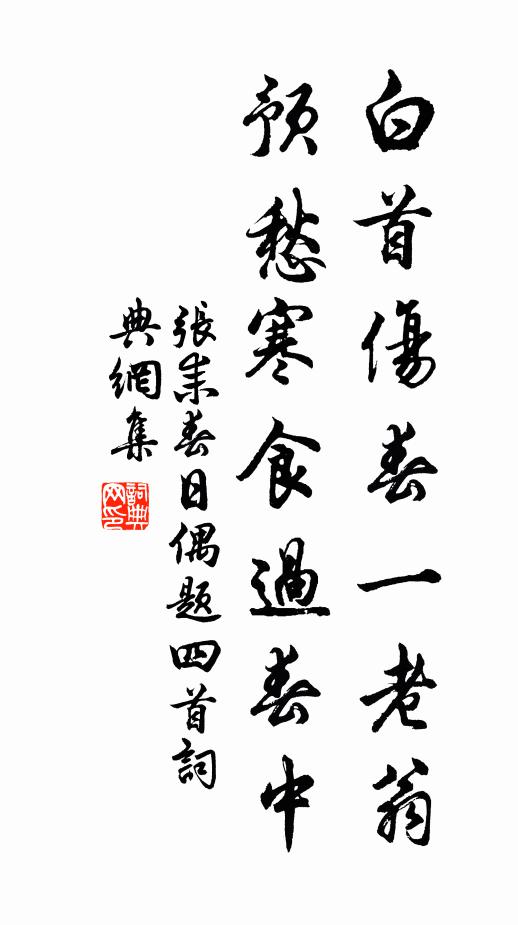 白首傷春一老翁
預愁寒食過春中
張耒春日偶題四首詞
典網集
詞典
网印